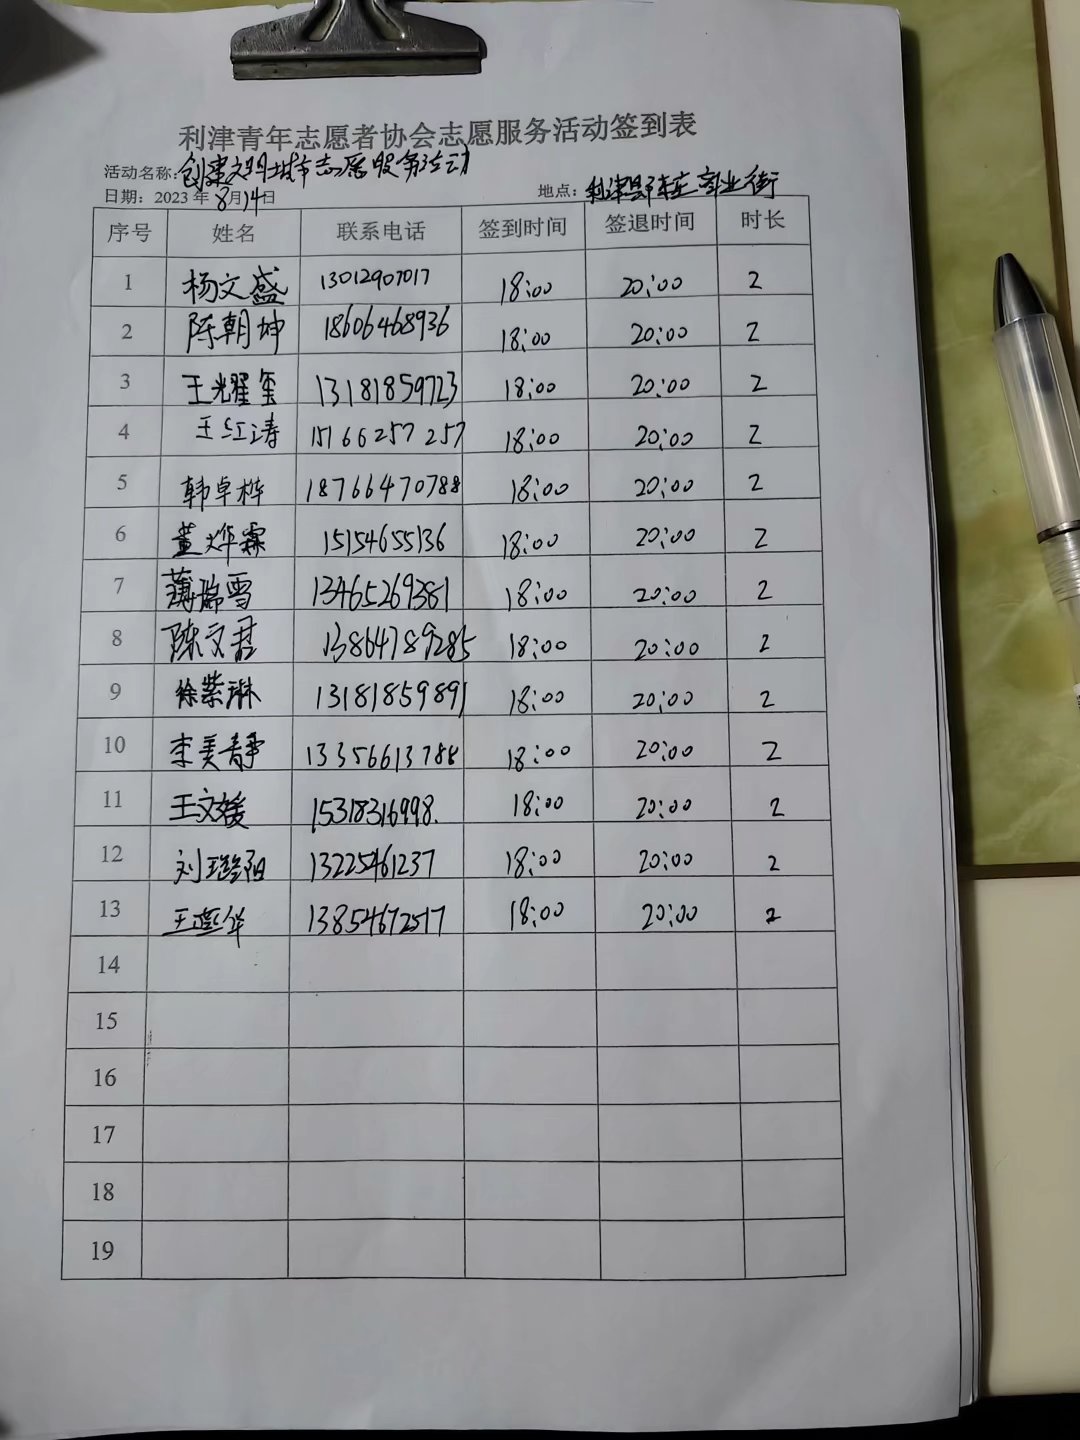 利津青年志愿者协会志愿服务活动签到表
活动名称:创建文明城市志愿服务活动
日期：2023年8月14日 地点：利津县 商业街
序号 姓名 联系电话 签到时间 签退时间 时长
1 杨文盛 13012907017 18:00 20:00 2
2 陈朝坤 18606468936 18:00 20:00 2
3 王光耀玺 13181859723 18:00 20:00 2
4 王红涛 15166257257 18:00 20:00 2
5 韩卓桦 18766470788 18:00 20:00 2
6 董烨霖 15154655136 18:00 20:00 2
7 薄瑞雪 13465269381 18:00 20:00 2
8 陈文君 13864789285 18:00 20:00 2
9 徐紫琳 13181859891 18:00 20:00 2
10 李美静 13356613788 18:00 20:00 2
11 王文媛 15318316998. 18:00 20:00 2
12 刘璐阳 13225461237 18:00 20:00 2
13 王 华 13854672517 18:00 20:00 2
14
15
16
17
18
19